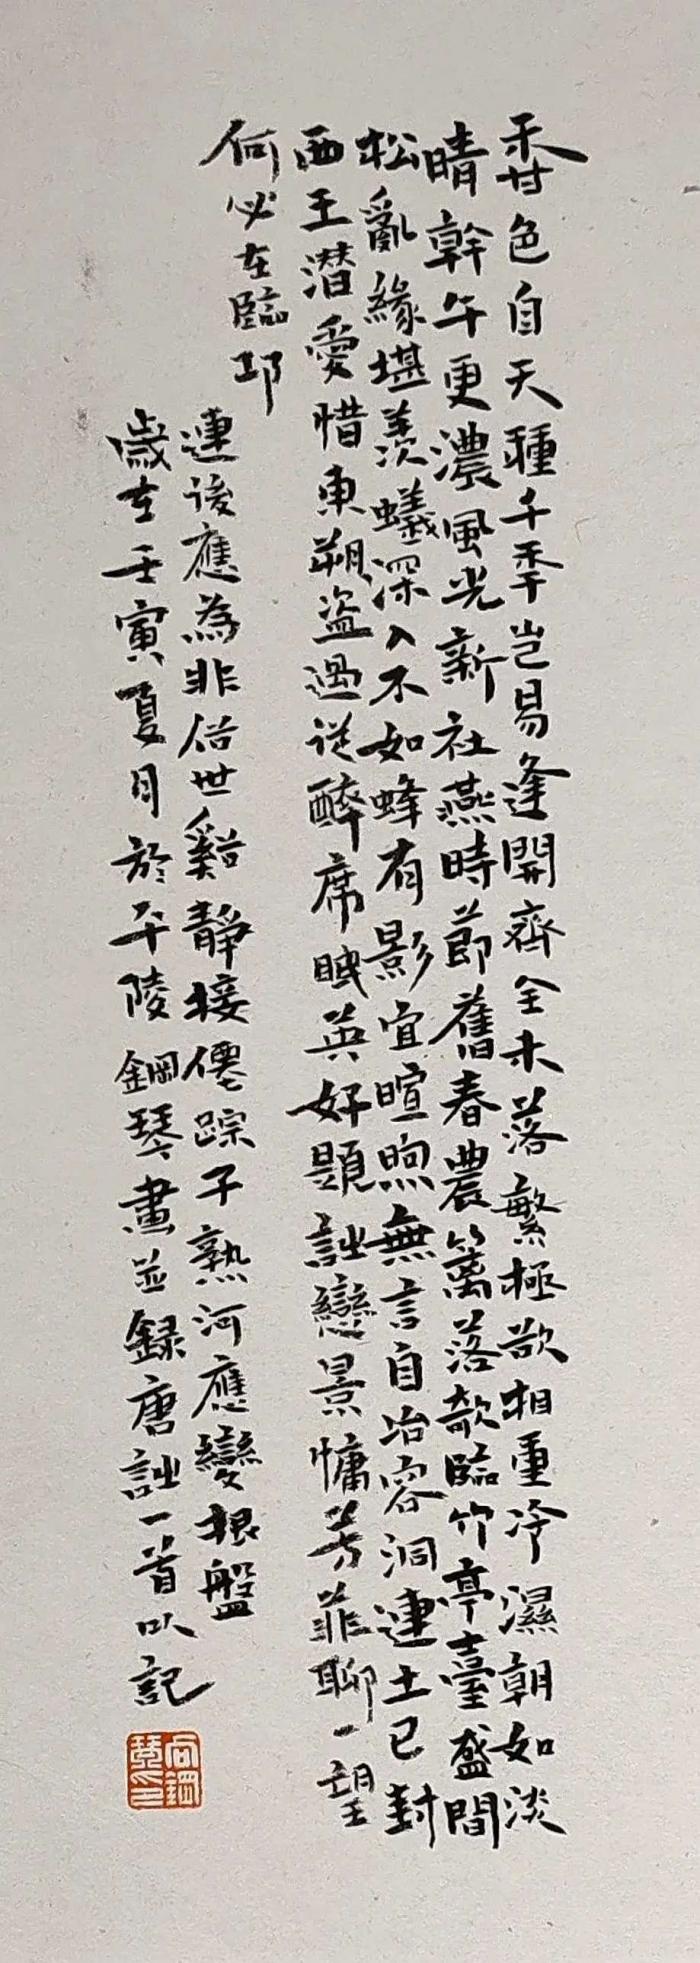 香色自天種千年岂易逢開齊全未落繁極欲相重冷濕朝如淡
晴幹午更濃風光新社燕時節舊春農籬落欹臨竹亭臺盛間
松亂緣堪羨蟻深入不如蜂有影宜暄煦無言自冶容洞連土已封
西王潜愛惜東朔盗過從醉席眠英好題詩戀景慵芳菲聊一望
何必在臨邛
連後應為非俗世谿靜接僊踪子熟河應變根盤
歲在壬寅夏月於平陵鋼琴畫並録唐詩一首以記